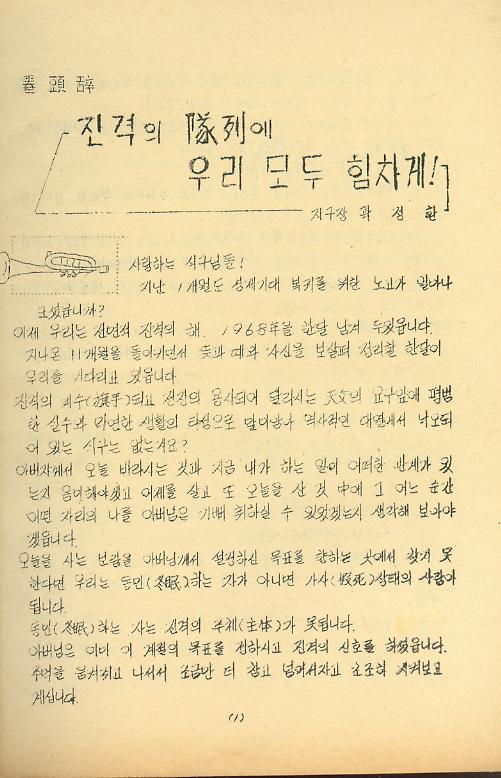 卷頭辞
진격의 隊列에
우리 모두 힘차게!
지구장 곽 정 환
사랑하는 식구님들!
지난 1개월도 성제기대 복귀를 위한 노고가 얼마나
크셨읍니까?
이제 우리는 전면적 진격의 해, 1968年을 한달 남겨 두었읍니다.
지나온 11개월을 돌이키면서 못과 때와 자신을 보살펴 정리할 한달이
우리를 기다리고 있읍니다.
진격의 기수(旗手)되고 전장의 용사되어 달라시는 天父의 요구앞에 평범
한 실수와 안연한 생활의 타성으로 말미암아 역사적인 대열에서 낙오되
어 있는 식구는 없는지요?
아버지께서 오늘 바라시는 것과 지금 내가 하는 일이 어떠한 관계가 있
는지 음미해야겠고 어제를 살고 또 오늘을 산 것 中에 그 어느 순간
어떤 자리의 나를 아버님은 기뻐 취하실 수 있었겠는지 생각해 보아야
겠읍니다.
오늘을 사는 보람을 아버님께서 설정하신 목표를 향하는 곳에서 찾지 못
한다면 우리는 동면(冬眠)하는 자가 아니면 가사(假死)상태의 사람이
됩니다.
동면(冬眠)하는 자는 진격의 주체(主体)가 못됩니다.
아버님은 이미 이 계절의 목표를 전하시고 진격의 신호를 하셨읍니다.
주먹을 움켜쥐고 나서서 조금만 더 참고 넘어서자고 초조히 지켜보고
계십니다.
(1)